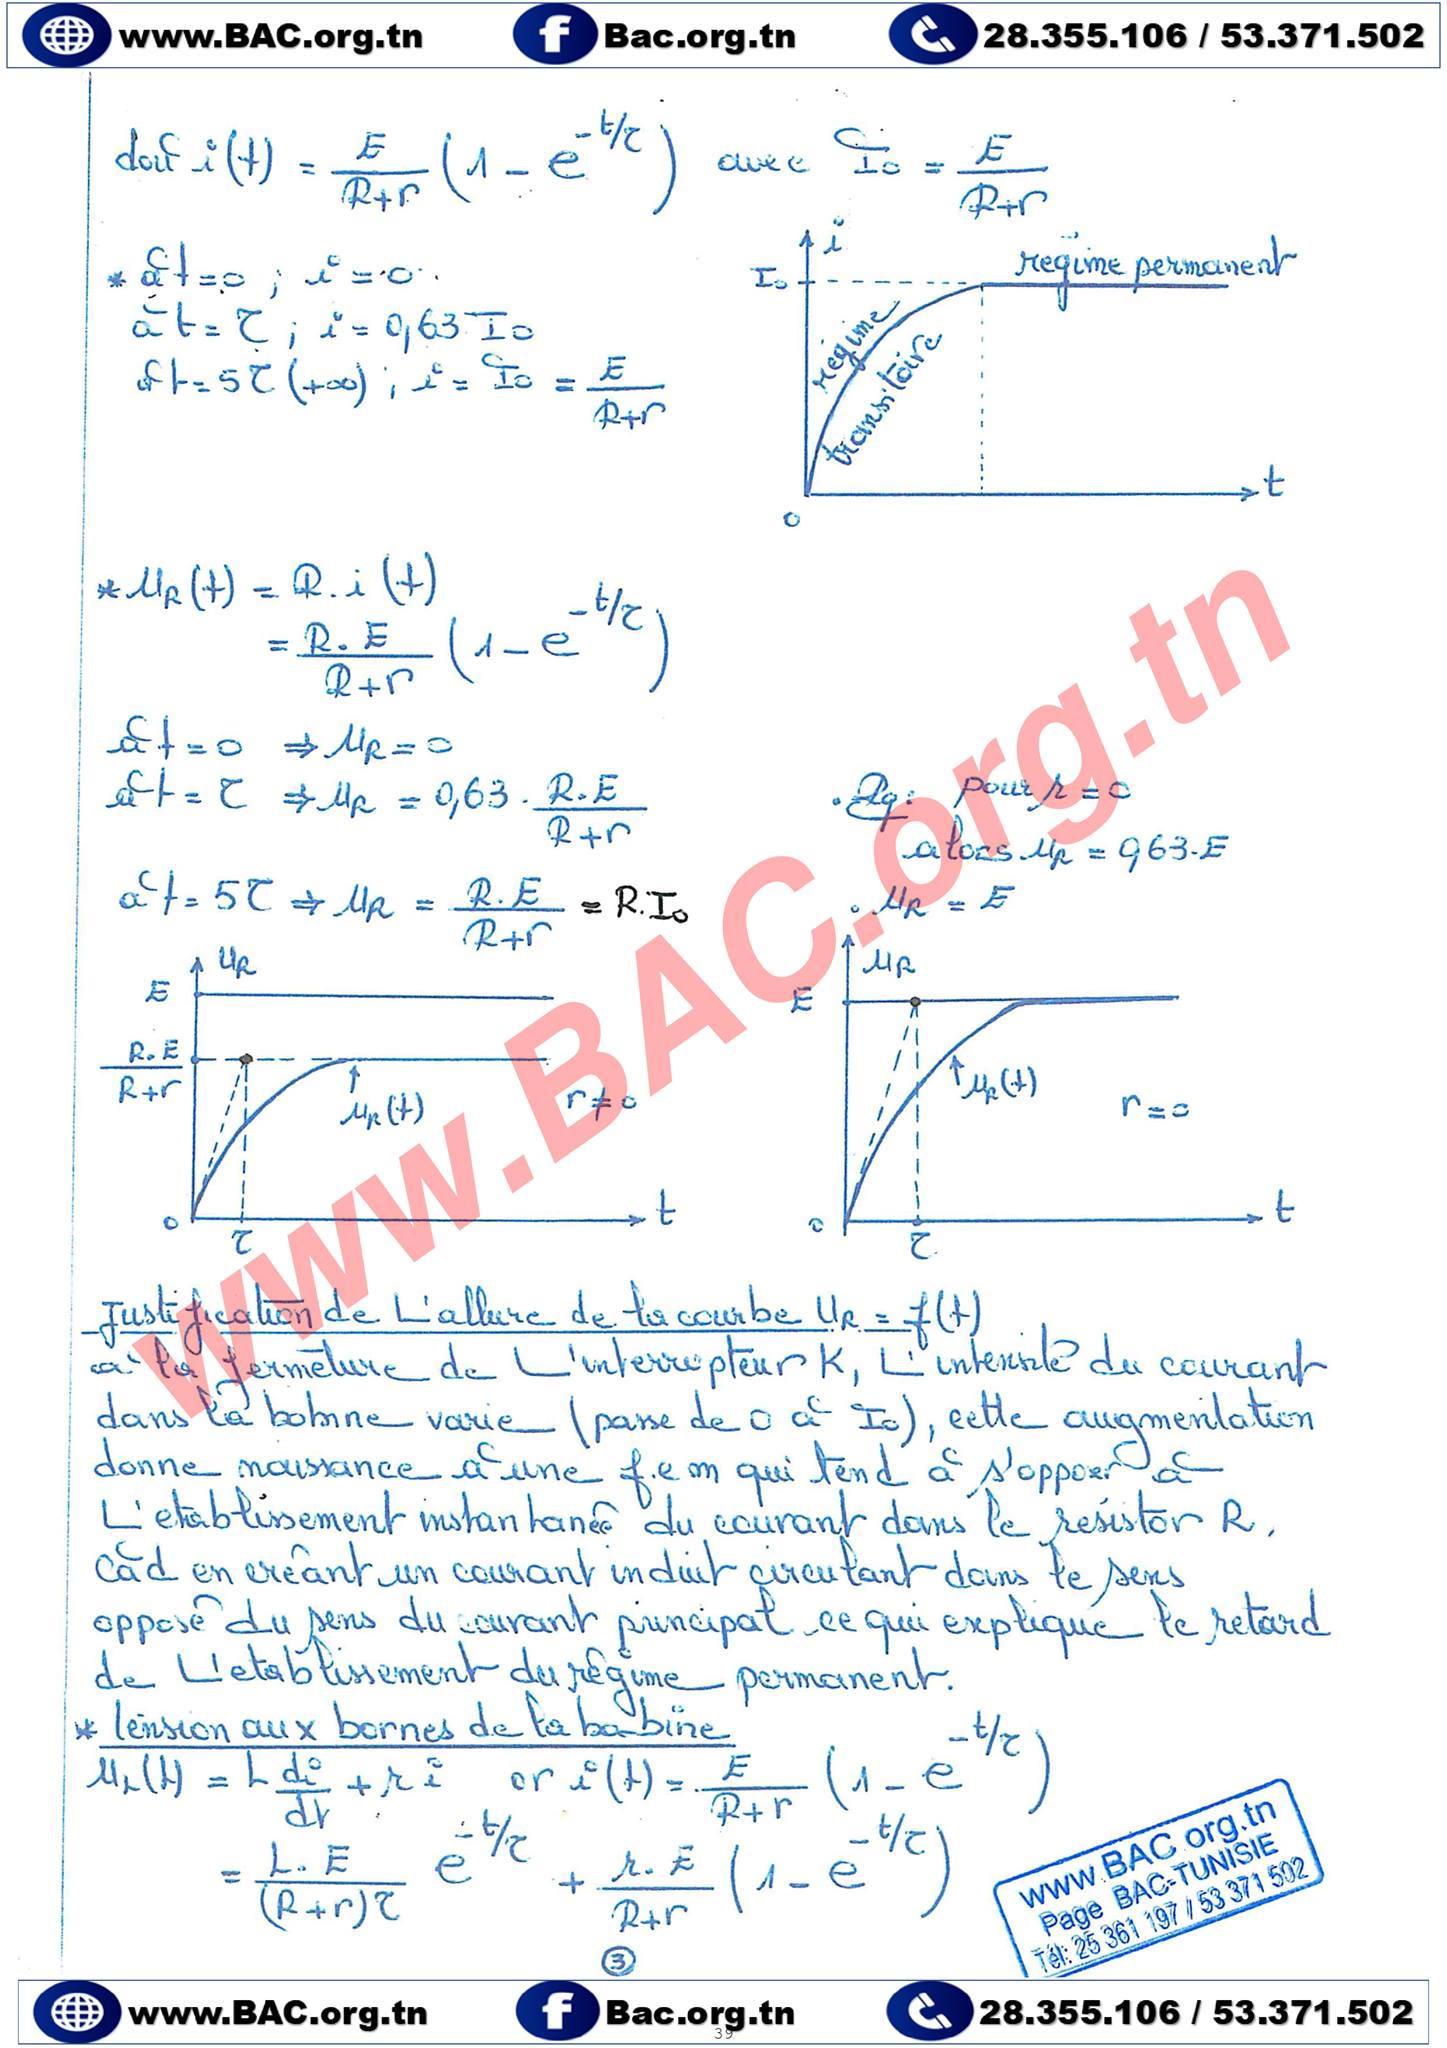 www.BAC.org.tn Bac.org.tn 28.355.106 / 53.371.502
doù i(t) = E/(R+r) (1 - e^(-t/τ)) avec I₀ = E/(R+r)
* à t=0 ; i=0
à t=τ ; i=0,63 I₀
à t=5τ (+∞) ; i = I₀ = E/(R+r)
i
I₀
régime permanent
régime
transitoire
0
t
* uR(t) = R.i(t)
= R.E/(R+r) (1 - e^(-t/τ))
à t=0 ⇒ uR=0
à t=τ ⇒ uR = 0,63 . R.E/(R+r)
à t=5τ ⇒ uR = R.E/(R+r) = R.I₀
. Rq: pour r=0
alors uR = 0,63.E
. uR = E
uR
E
R.E/(R+r)
uR(t)
r≠0
0
τ
t
uR
E
uR(t)
r=0
0
τ
t
Justification de L'allure de la courbe uR = f(t)
à la fermeture de L'interrupteur K, L'intensité du courant
dans la bobine varie (passe de 0 à I₀), cette augmentation
donne naissance à une f.e m qui tend à s'opposer à
L'établissement instantané du courant dans le résistor R,
càd en créant un courant induit circulant dans le sens
opposé du sens du courant principal ce qui explique le retard
de L'établissement du régime permanent.
* Tension aux bornes de la bobine
uL(t) = L di/dt + r i or i(t) = E/(R+r) (1 - e^(-t/τ))
= L.E/((R+r)τ) e^(-t/τ) + r.E/(R+r) (1 - e^(-t/τ))
www.BAC.org.tn
www.BAC.org.tn
Page BAC-TUNISIE
Tél: 25 361 197 / 53 371 502
3
www.BAC.org.tn Bac.org.tn 28.355.106 / 53.371.502
39